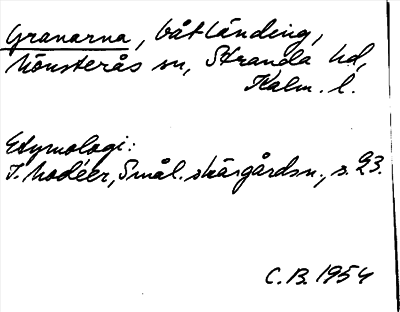 Granarna, båtländing,
Mönsterås sn, Stranda hd,
Kalm. l.
Etymologi:
I. Modéer, Smål. skärgårdsn., s. 23.
C.B. 1954